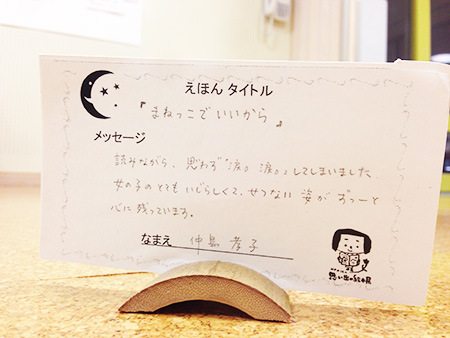 えほん タイトル
『まねっこでいいから』
メッセージ
読みながら、思わず「涙」涙」してしまいました
女の子のとてもいじらしくて、せつない 姿が ずっーと
心に 残っています。
なまえ 仲島 孝子
思い出のえほん展